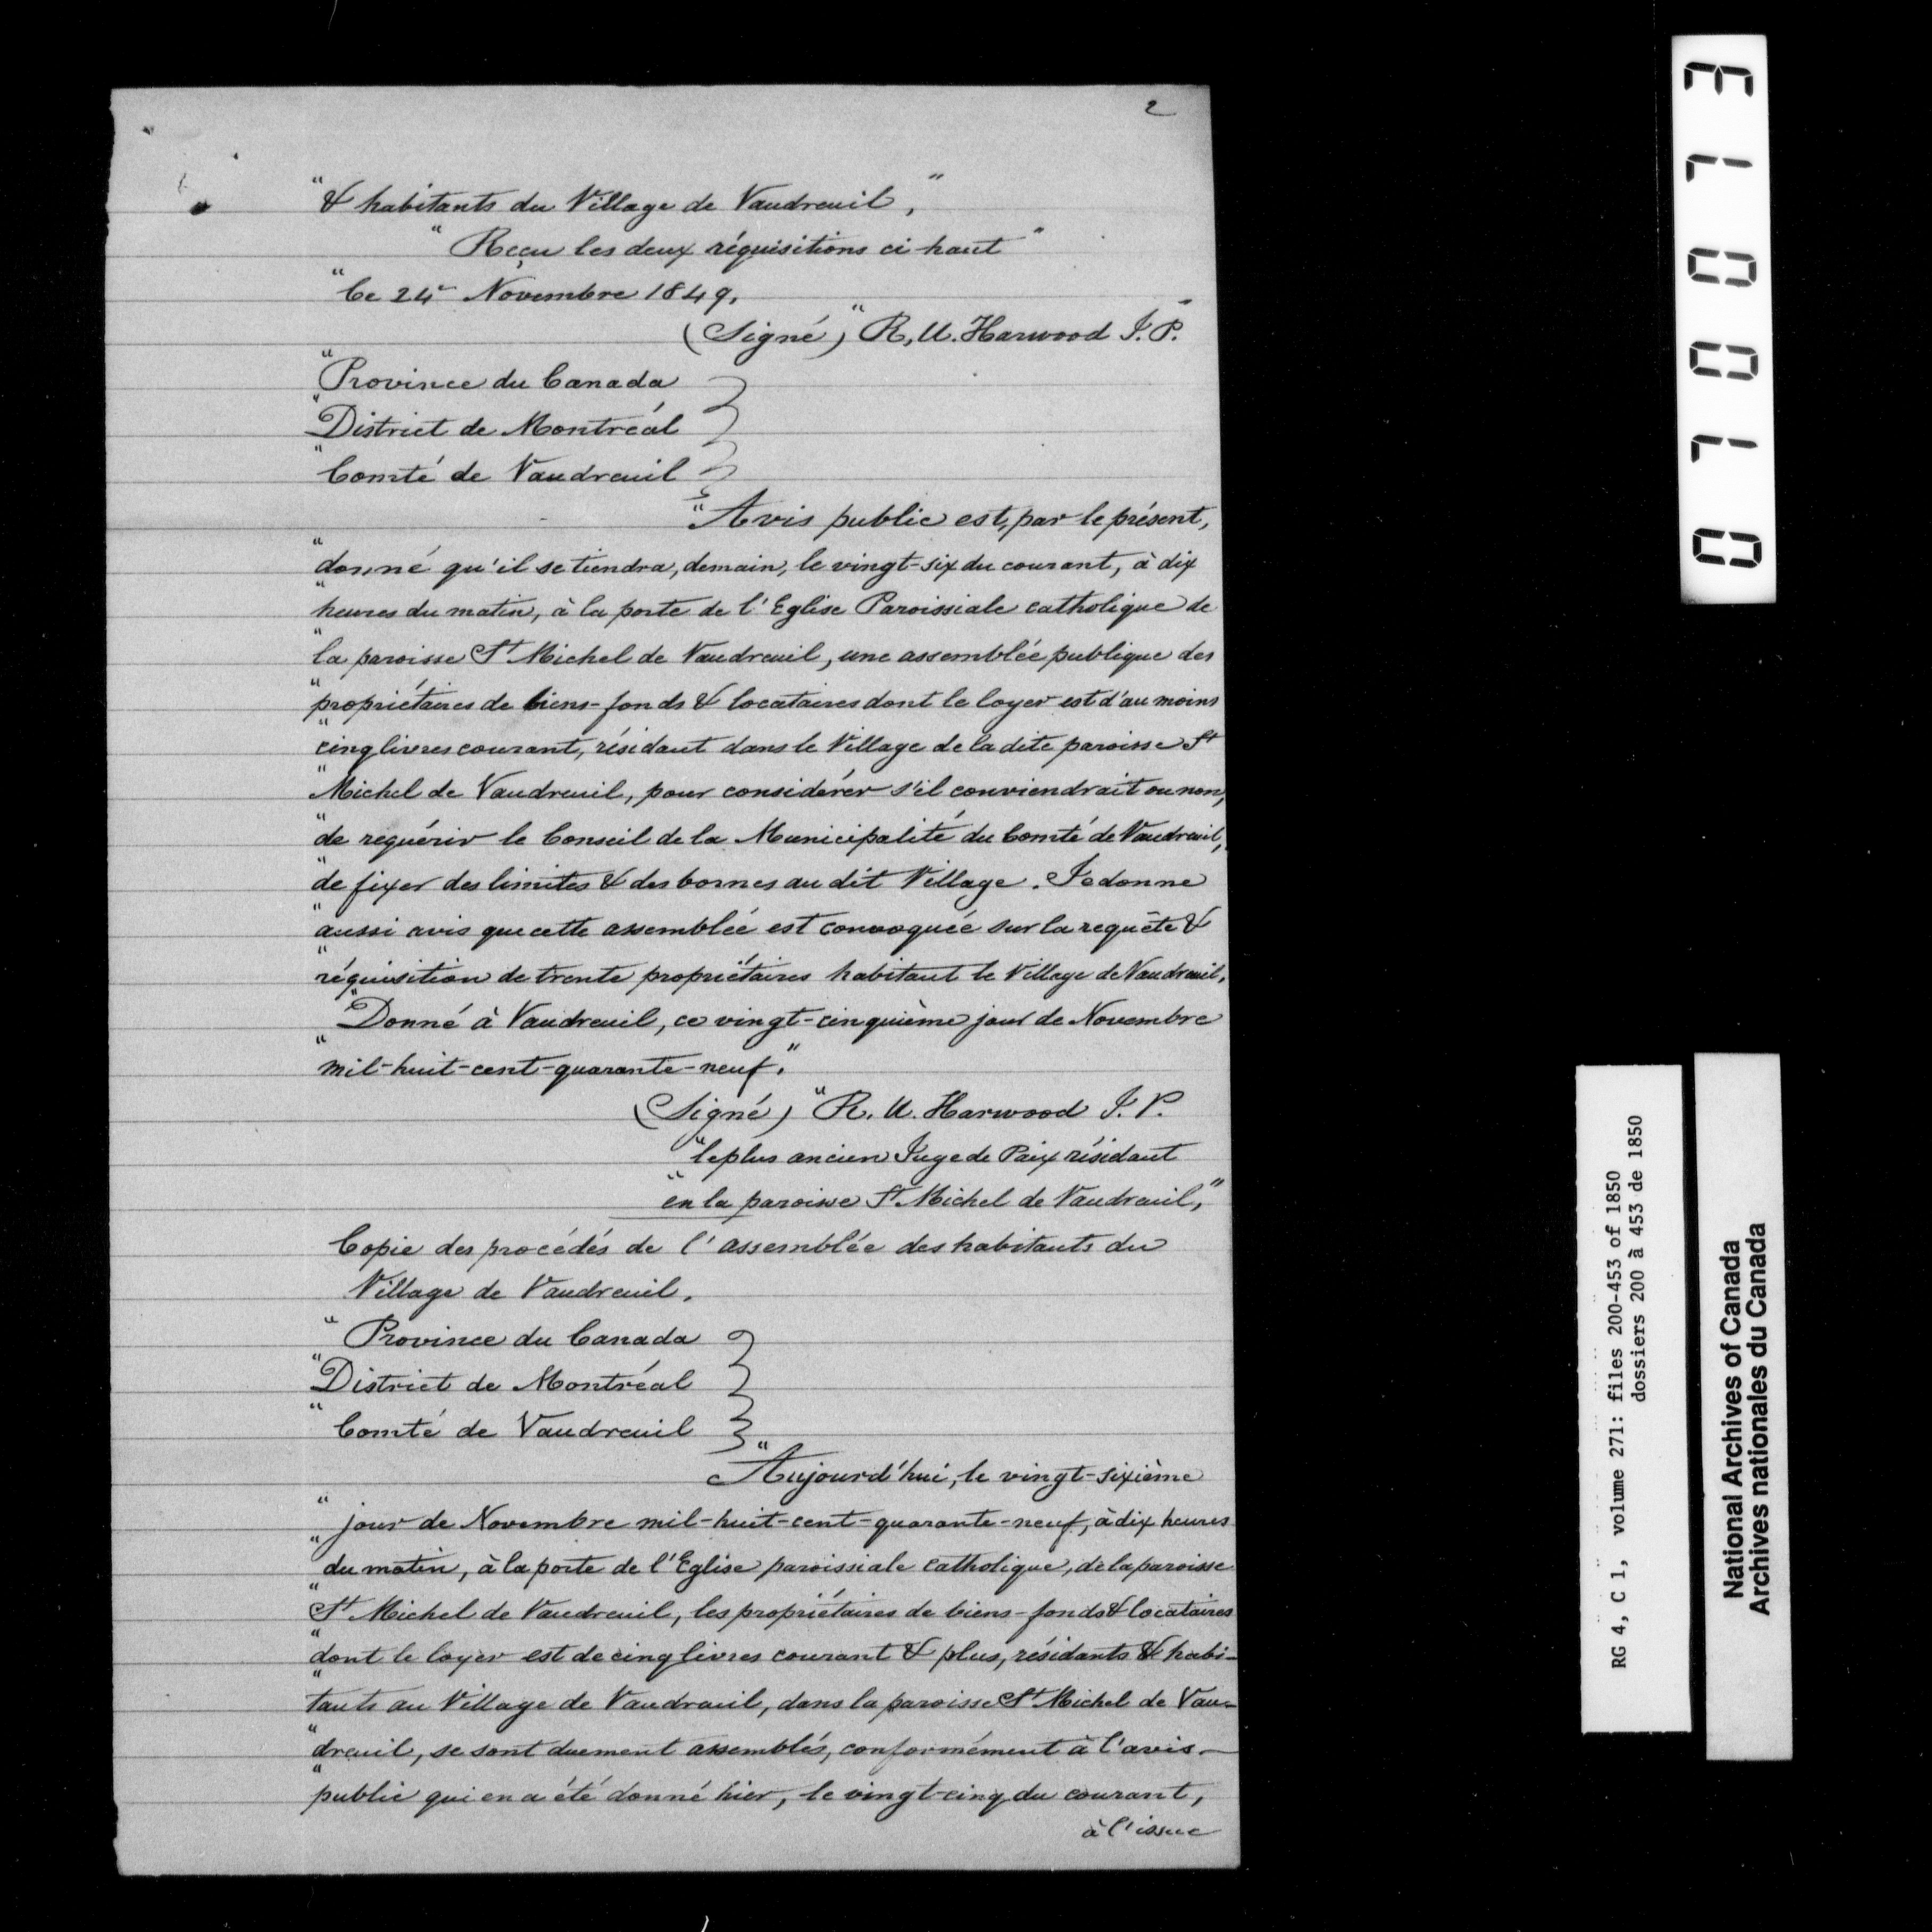 2
"& habitants du Village de Vaudreuil,"
"Reçu les deux réquisitions ci-haut"
"Ce 24e Novembre 1849.
(Signé) "R. U. Harwood J. P."
"Province du Canada
"District de Montréal
"Comté de Vaudreuil
"Avis public est, par le présent,
"donné qu'il se tiendra, demain, le vingt-six du courant, à dix
"heures du matin, à la porte de l'Eglise Paroissiale catholique de
"la paroisse St Michel de Vaudreuil, une assemblée publique des
"propriétaires de biens-fonds & locataires dont le loyer est d'au moins
"cinq livres courant, résidant dans le Village de la dite paroisse St
"Michel de Vaudreuil, pour considérer s'il conviendrait ou non,
"de requérir le Conseil de la Municipalité du Comté de Vaudreuil,
"de fixer des limites & des bornes au dit Village. Je donne
"aussi avis que cette assemblée est convoquée sur la requête &
"réquisition de trente propriétaires habitant le Village de Vaudreuil.
"Donné à Vaudreuil, ce vingt-cinquième jour de Novembre
"mil-huit-cent-quarante-neuf."
(Signé) "R. U. Harwood J. P.
"le plus ancien Juge de Paix résidant
"en la paroisse St Michel de Vaudreuil,"
Copie des procédés de l'assemblée des habitants du
Village de Vaudreuil.
"Province du Canada
"District de Montréal
"Comté de Vaudreuil
"Aujourd'hui, le vingt-sixième
"jour de Novembre mil-huit-cent-quarante-neuf, à dix heures
"du matin, à la porte de l'Eglise paroissiale catholique, de la paroisse
"St Michel de Vaudreuil, les propriétaires de biens-fonds & locataires
"dont le loyer est de cinq livres courant & plus, résidants & habi-
"tants au Village de Vaudreuil, dans la paroisse St Michel de Vau-
"dreuil, se sont duement assemblés, conformément à l'avis
"public qui en a été donné hier, le vingt-cinq du courant,
à l'issue
0 7 0 0 7 3
RG 4, C 1, volume 271: files 200-453 of 1850
dossiers 200 à 453 de 1850
National Archives of Canada
Archives nationales du Canada